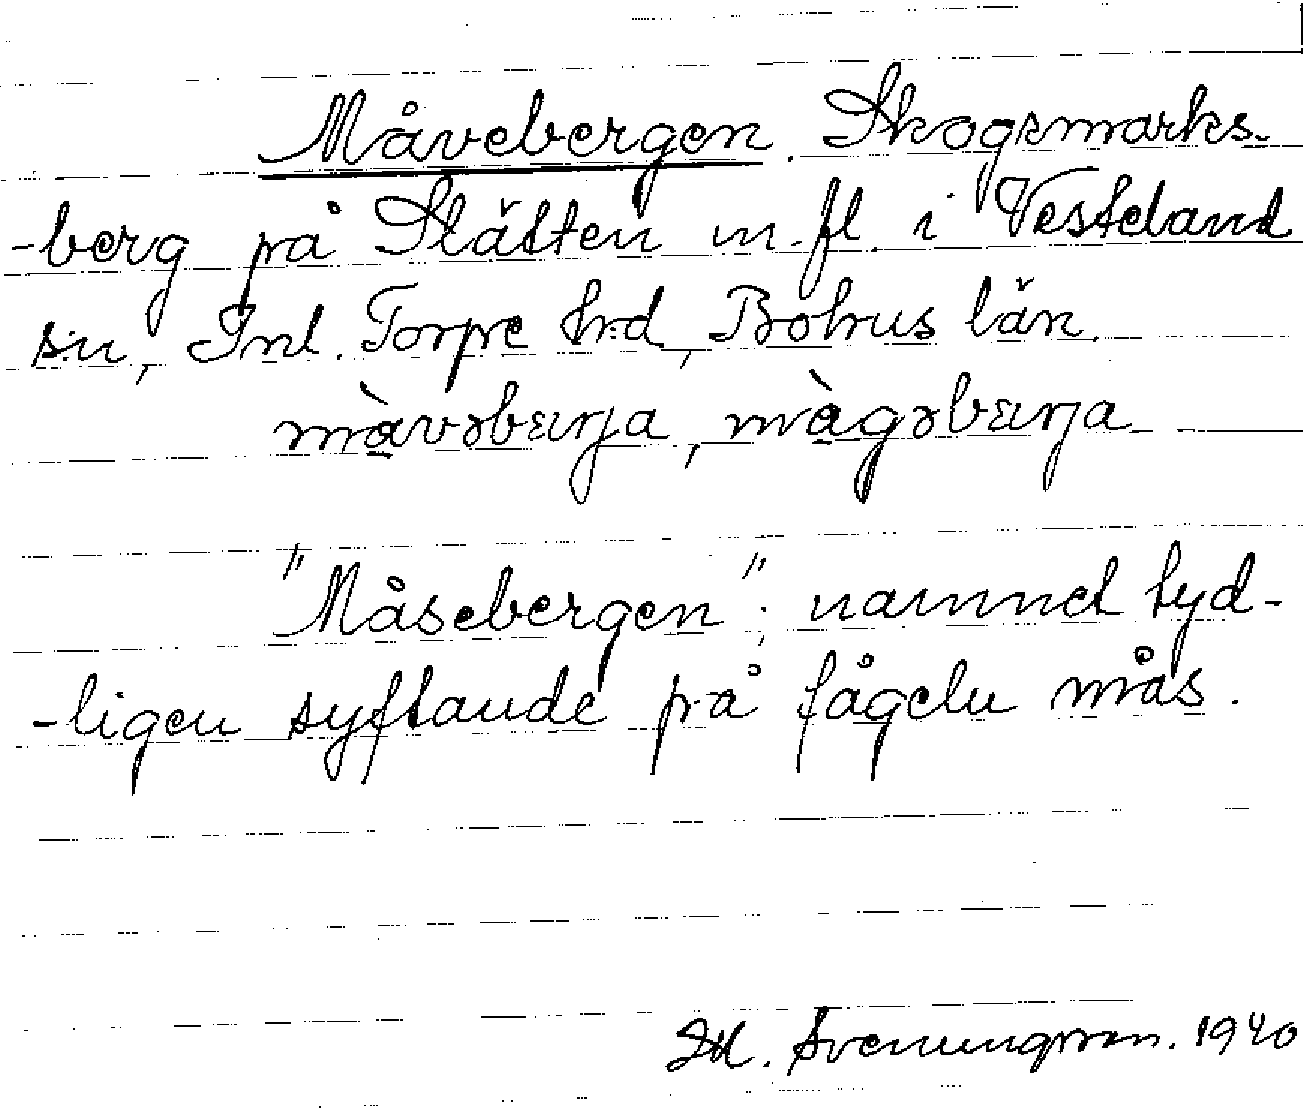 Måvebergen. Skogsmarks-
-berg på Slätten m. fl. i Vesteland
sn, Inl. Torpe hrd, Bohus län.
màvəbærja, màgəbærja
"Måsebergen"; namnet tyd-
-ligen syftande på fågeln mås.
Svenungsson. 1940